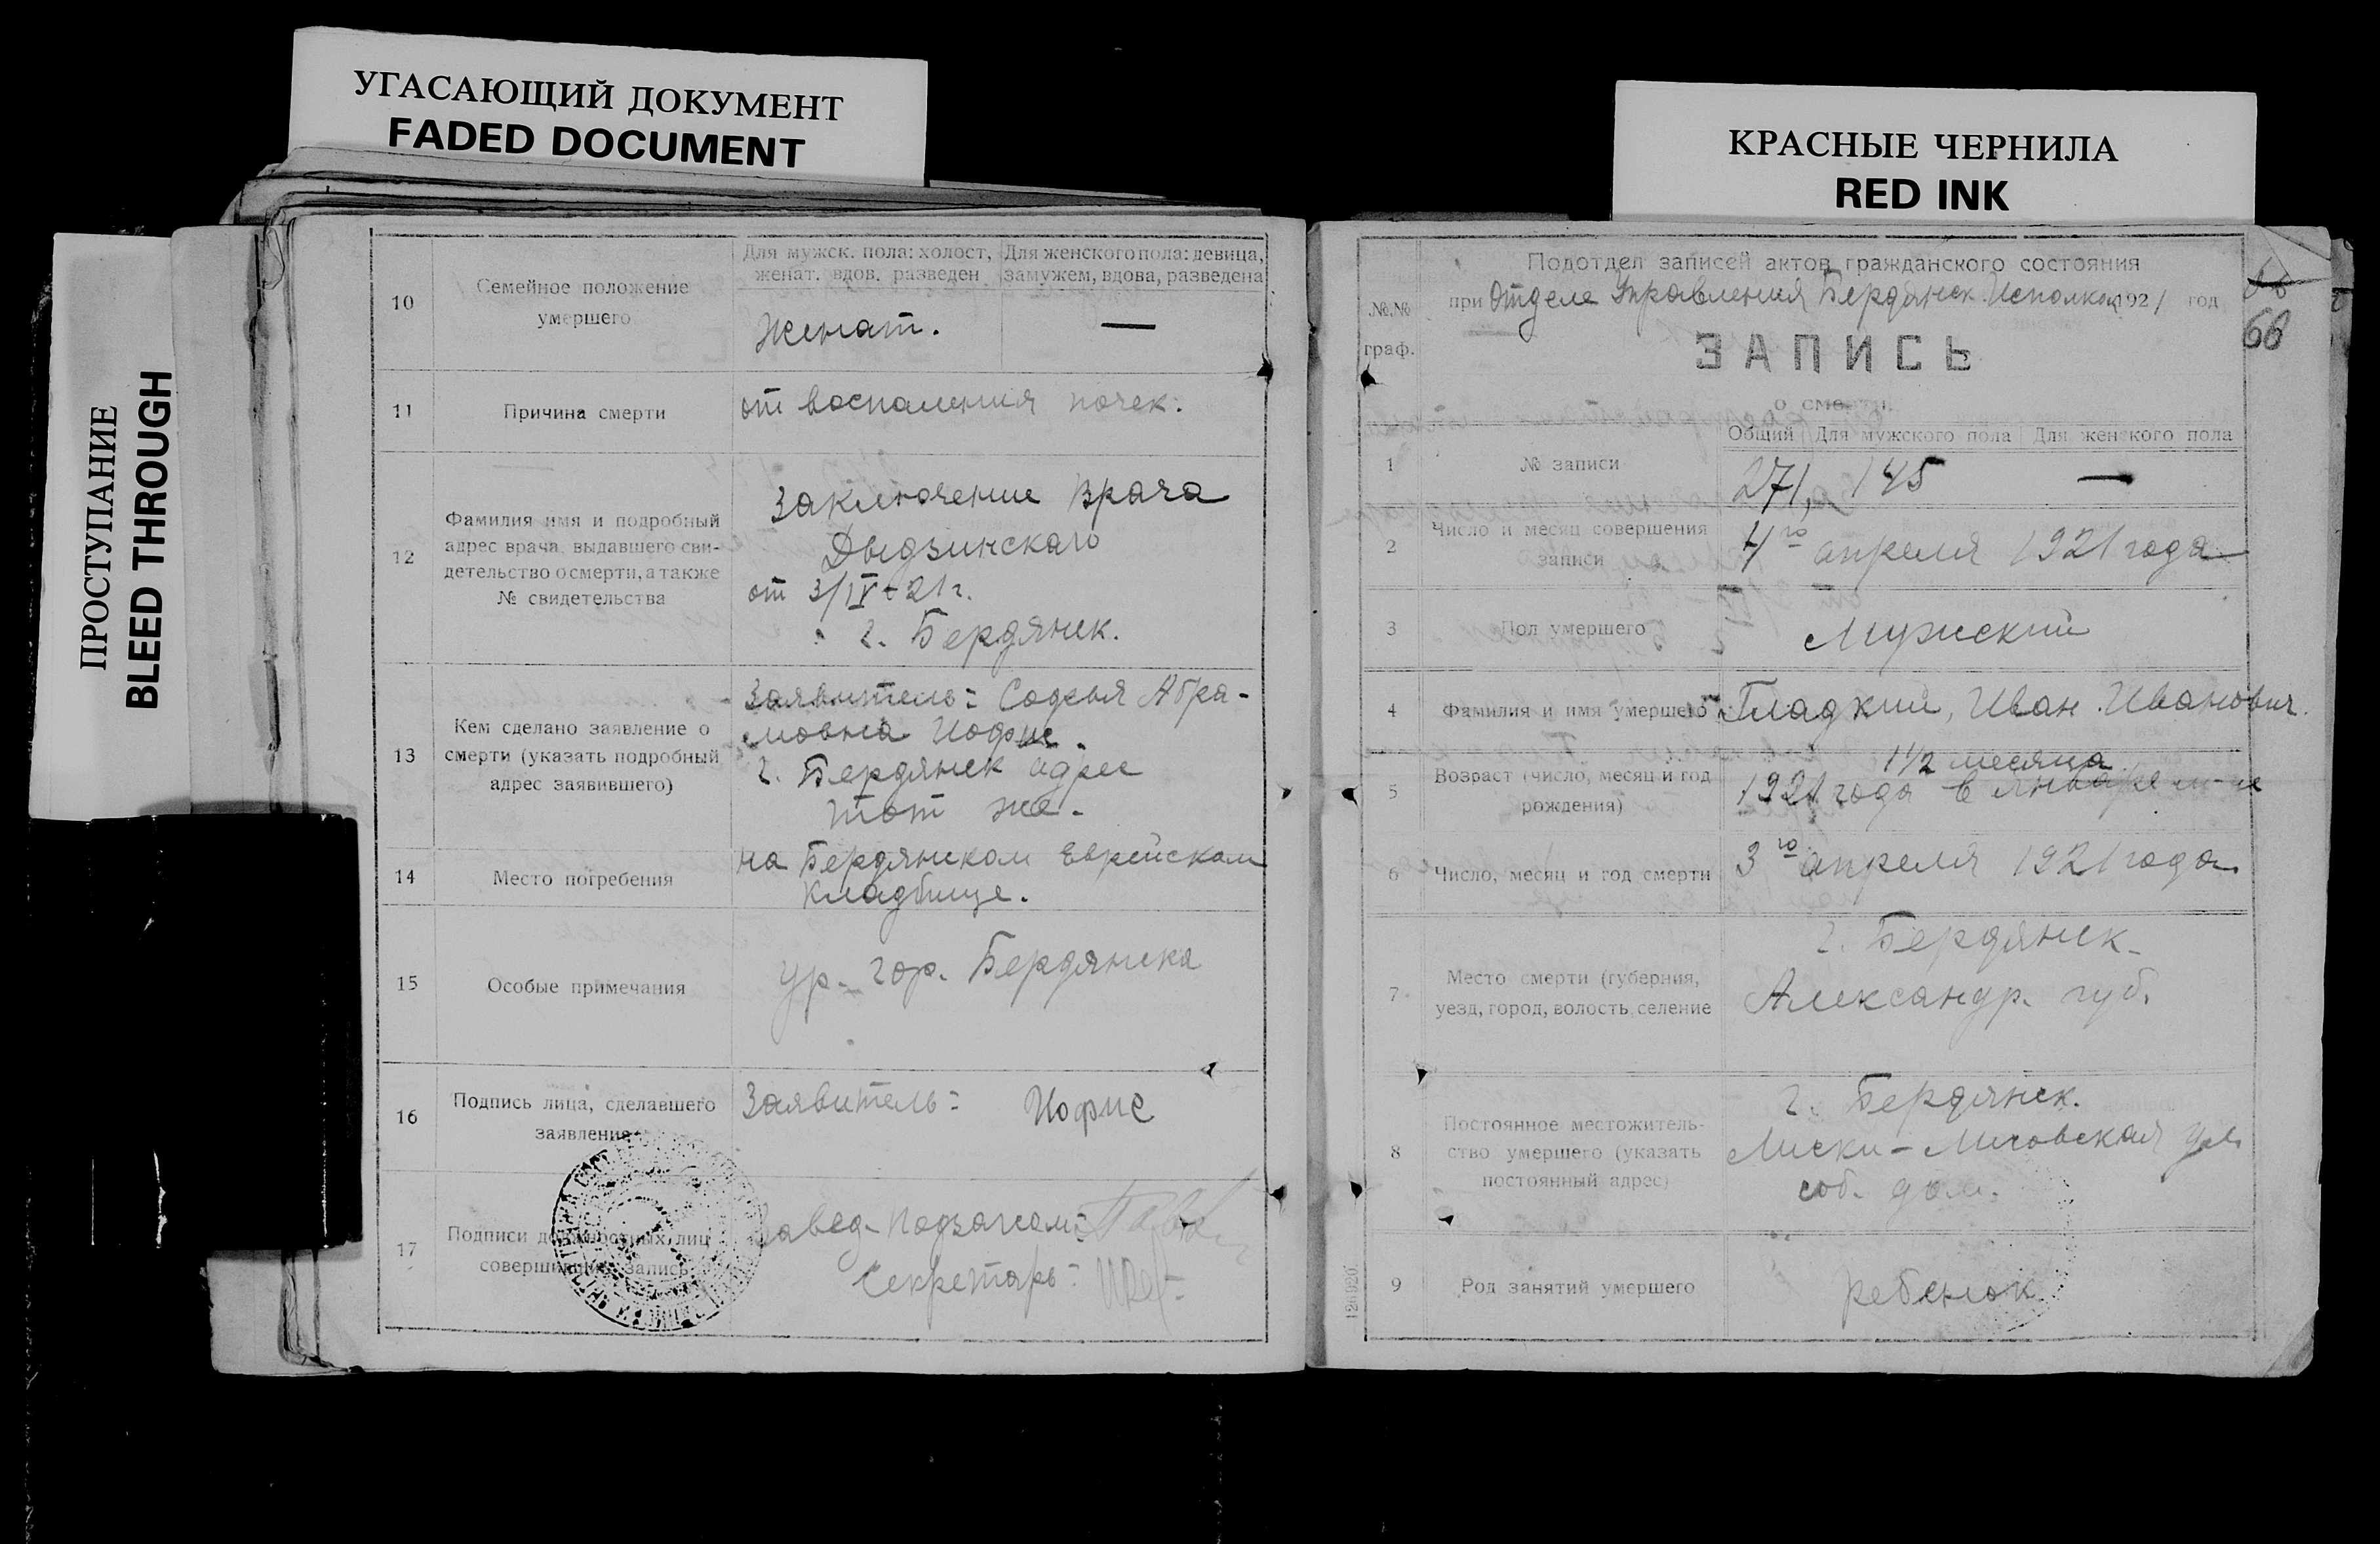 УГАСАЮЩИЙ ДОКУМЕНТ
FADED DOCUMENT
ПРОСТУПАНИЕ
BLEED THROUGH
10
Семейное положение
умершего
Для мужск. пола: холост,
женат. вдов. разведен
Для женского пола: девица,
замужем, вдова, разведена
Женат.
—
11
Причина смерти
от воспаления почек.
12
Фамилия имя и подробный
адрес врача, выдавшего сви-
детельство о смерти, а также
№ свидетельства
Заключение врача
Дыдзинскаго
от 3/IV-21 г.
г. Бердянск.
13
Кем сделано заявление о
смерти (указать подробный
адрес заявившего)
Заявитель: Софья Абра-
мовна Иофис.
г. Бердянск адрес
тот же.
14
Место погребения
на Бердянском Еврейском
кладбище.
15
Особые примечания
ур. гор. Бердянска
16
Подпись лица, сделавшего
заявление
Заявитель: Иофис
17
Подписи должностных лиц
совершивших запись
Завед. Подзагсом:
Секретарь:
КРАСНЫЕ ЧЕРНИЛА
RED INK
№№
граф.
Подотдел записей актов гражданского состояния
при Отделе Управления Бердянск. Исполком 1921 год
66
ЗАПИСЬ
о смерти.
Общий
Для мужского пола
Для женского пола
1
№ записи
271, 145 —
2
Число и месяц совершения
записи
4го апреля 1921 года
3
Пол умершего
Мужский
4
Фамилия и имя умершего
Гладкий, Иван Иванович.
5
Возраст (число, месяц и год
рождения)
1 1/2 месяца
1921 года в январе м-це
6
Число, месяц и год смерти
3го апреля 1921 года
7
Место смерти (губерния,
уезд, город, волость, селение
г. Бердянск
Александр. губ.
8
Постоянное местожитель-
ство умершего (указать
постоянный адрес)
г. Бердянск.
Лиски - Личовская ул.
соб. дом.
9
Род занятий умершего
ребенок